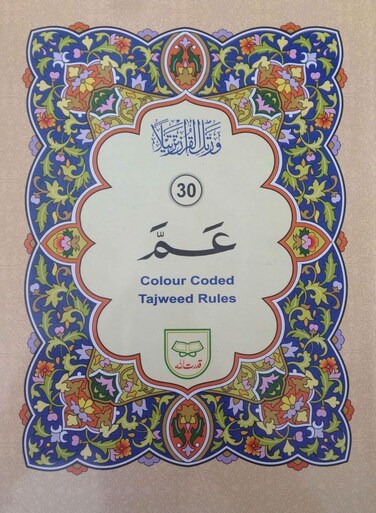 ورتل القرآن ترتيلا
30
عَمَّ
Colour Coded
Tajweed Rules
قدرت اللہ